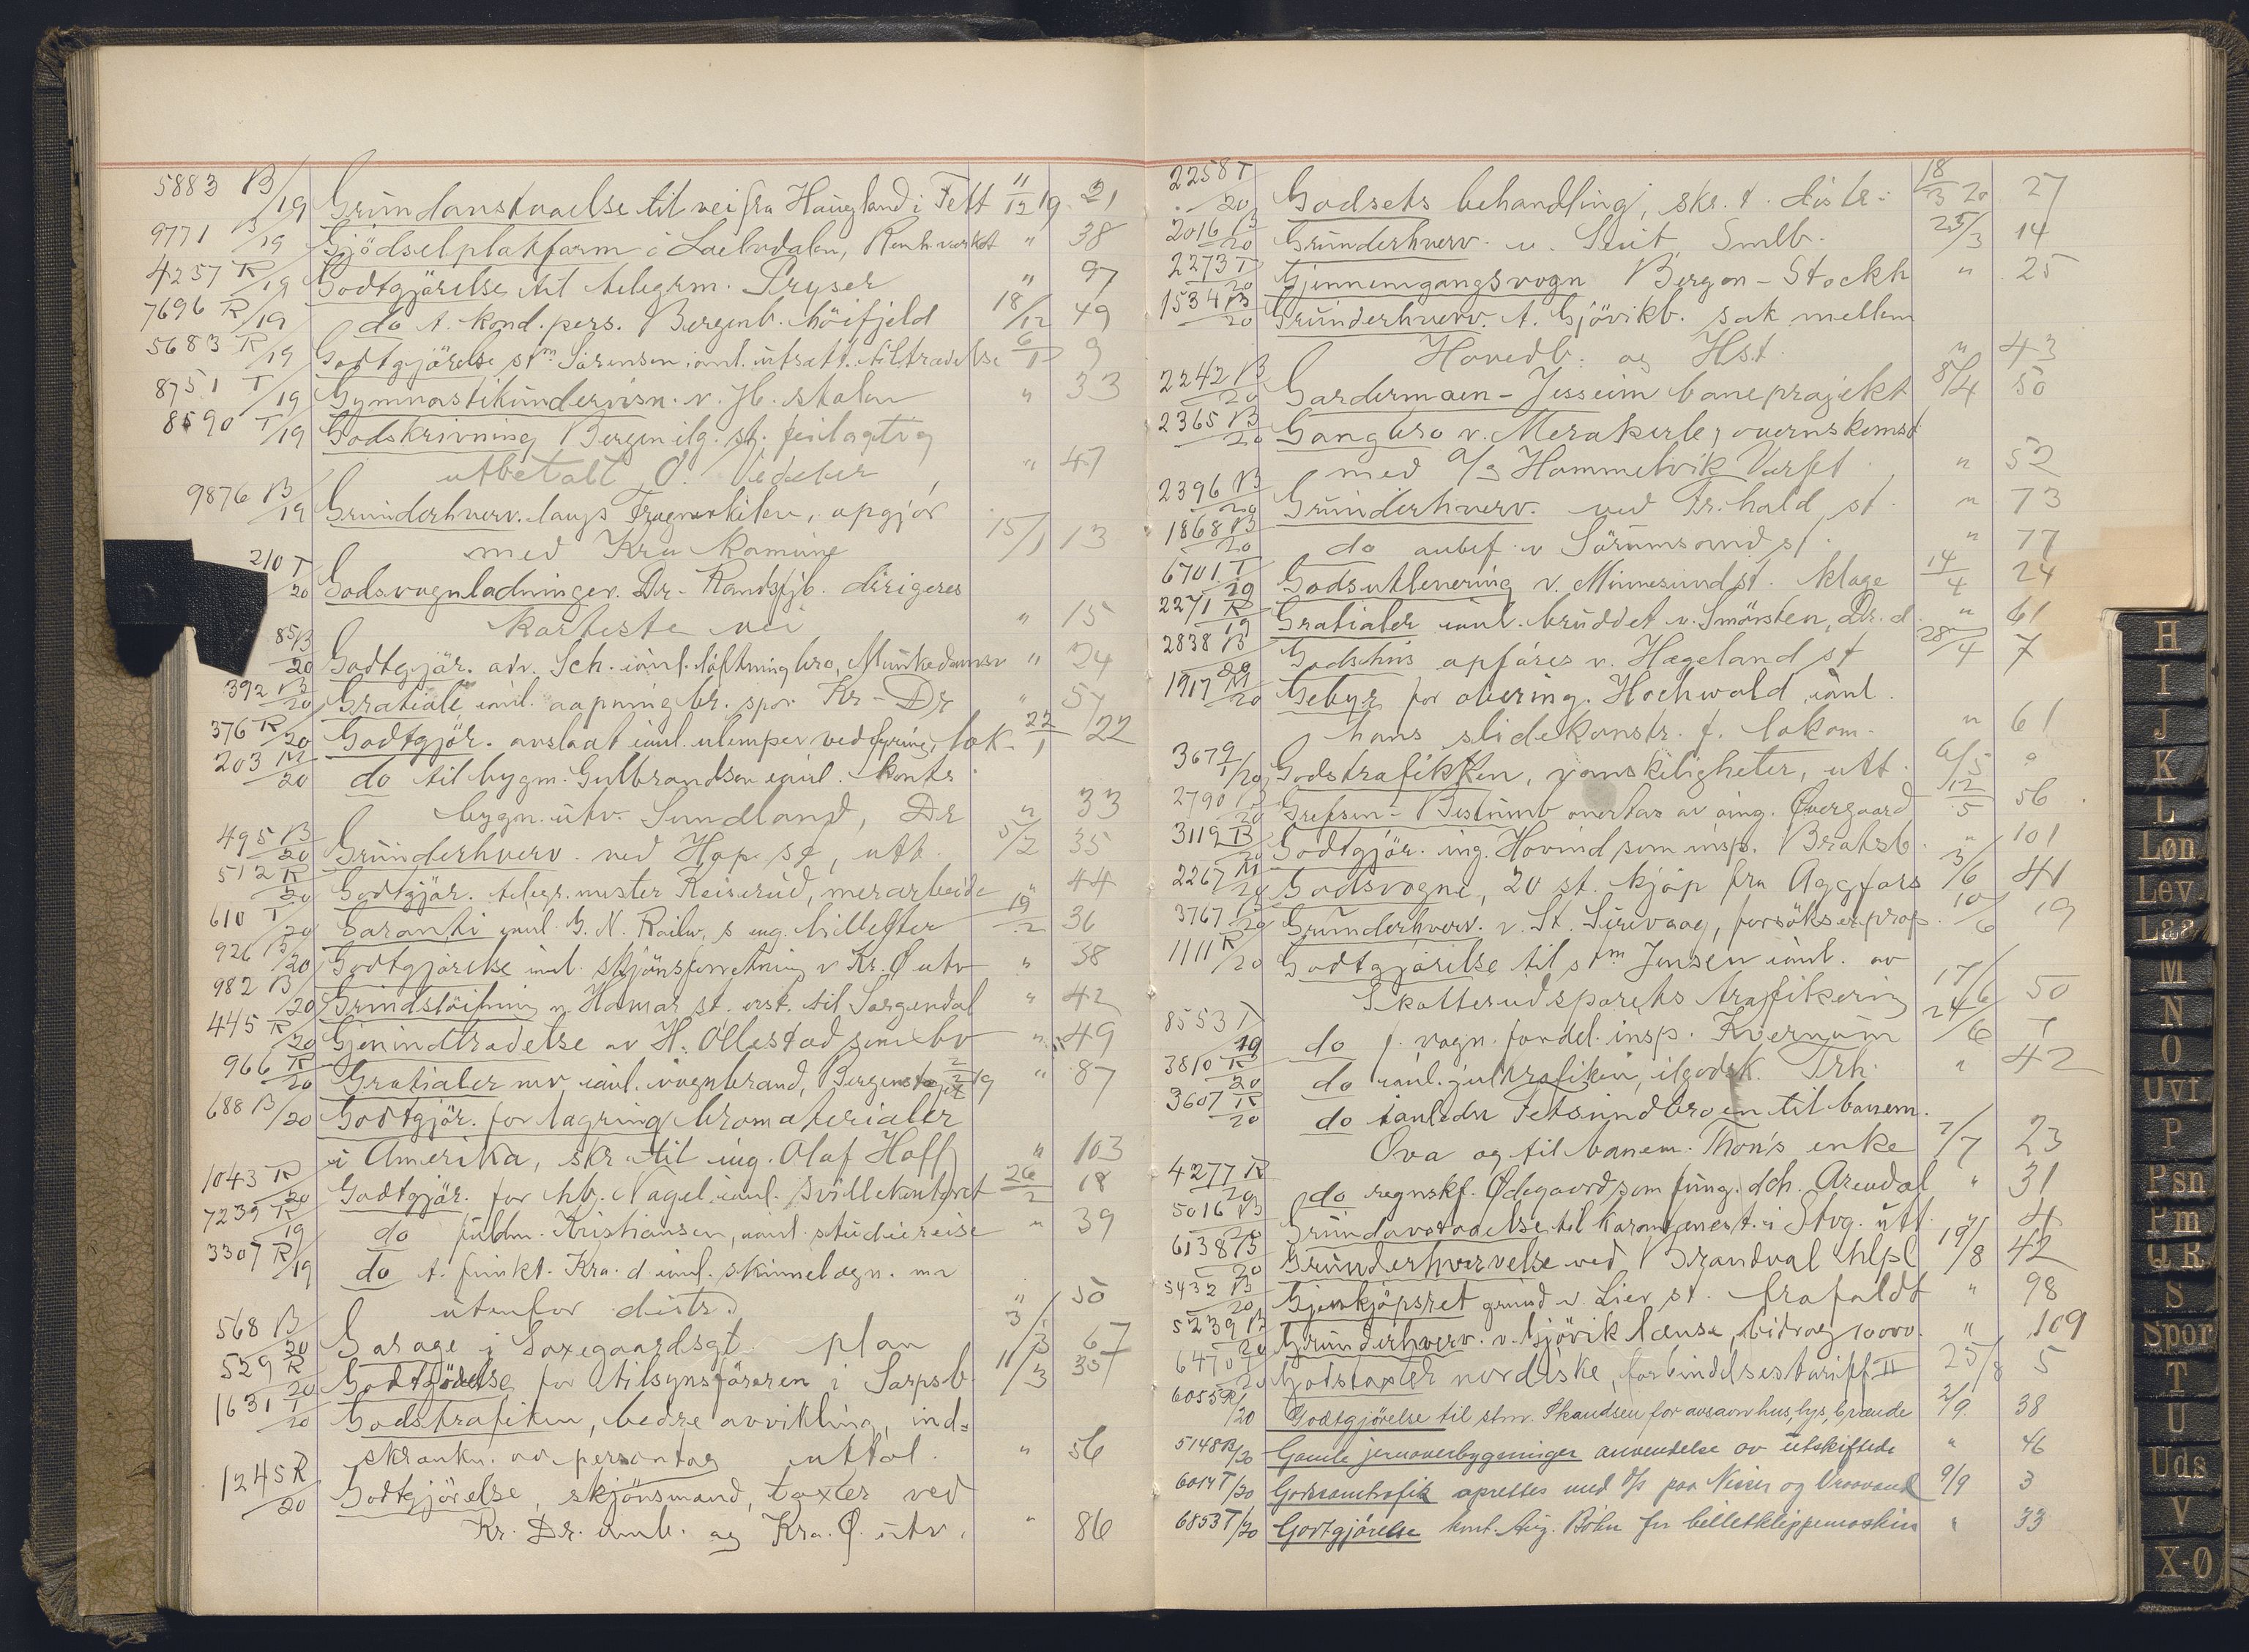 5883 B/19 Grundavstaaelse til vei fra Haugland i Fett 11/12 19 21
9771 B/19 Gjödselplatform i , Renh.verket " 38
4257 R/19 Godtgjörelse til telegrm. Pryser " 97
7696 R/19 do t. kond. pers. Bergensb. höifjeld 18/12 49
5683 R/19 Godtgjörelse stm Sörensen ianl. utsatt tiltrædelse 6/1 9
8751 T/19 Gymnastikundervisn. v. Jb. skolen " 33
8590 T/19 Godskrivning Bergen ilg. st. feilagtig
utbetalt O. " 47
9876 B/19 Grunderhverv. langs Frognerkilen, opgjör
med Kra komune 15/1 13
210 T/20 Godsvognladninger. Dr.-Randsfjb. dirigeres
korteste vei " 15
85 B/20 Godtgjör. adv. Sch. ianl. löftningbro, Munkedamsv " 24
392 B/20 Gratiale ianl. aapning br. spor Kr-Dr " 57
376 R/20 Godtgjör. avslaat ianl. ulemper ved fyring, lok. 22/1 22
203 M/20 do til bygm. Gulbrandsen ianl. kontr.
bygn. utv. Sundland, Dr " 33
495 B/20 Grunderhverv. ved Hop st, utt. 5/2 35
512 R/20 Godtgjör. telegr.mester Reiserud, merarbeide " 44
610 T/20 Garanti ianl. G. N. Railw, s eng. billetter 19/2 36
926 B/20 Godtgjörelse ianl. skjönsforretning v Kr. Ø utv " 38
982 B/20 Grindslöifning n. Hamar st. erst. til Sorgendal " 42
445 R/20 Gjenindtrædelse av H. Ollestad som bv " 49
966 R/20 Gratialer mv ianl. vognbrand, Bergenstoget 2/2 19 " 87
688 B/20 Godtgjör. for lagring bromaterialer
i Amerika, skr til ing. Olaf Hoff " 103
1043 R/20 Godtgjör. for hb. Nagel ianl. svillekontoret 26/2 18
7239 R/19 do fuldm. Kristiansen, ianl. studiereise " 39
3307 R/19 do t. funkt. Kra. d ianl. skinnelægn. mv
utenfor distr. " 50
568 B/20 Garage i Saxegaardsgt plan 3/3 67
529 R/20 Godtgjörelse for tilsynsföreren i Sarpsb. 11/3 35
1631 T/20 Godstrafiken, bedre avvikling, ind-
skrænkn. av persontog uttal. " 56
1245 R/20 Godtgjörelse, skjönsmænd, taxter ved
Kr. Dr. omb. og Kra. Ø. utv. " 86
2258 T/20 Godsets behandling, skr. t. distr. 18/3 20 27
2016 B/20 Grunderhverv. v. Smlb. 25/3 14
2273 T/20 Gjennemgangsvogn Bergen-Stockh " 25
1534 B/20 Grunderhverv. t. Gjövikb. sak mellem
Hovedb. og Hst. " 43
2242 B/20 Gardermoen-Jessheim baneprojekt 8/4 50
2365 B/20 Gangbro v. Merakerb, overnskomst
med A/S Hommelvik Værft " 52
2396 B/20 Grunderhverv. ved Fr.hald st. " 73
1868 B/20 do anbef. v Sörumsand st. " 77
6701 T/19 Godsutlevering v. Minnesund st. klage 14/4 24
2271 R/19 Gratialer ianl. bruddet v. Smörsten, Dr. d. " 61
2838 B/20 Godshus opföres v. Hægeland st 28/4 7
1917 M/20 Gebyr for obering. Hochwald ianl.
hans slidekonstr. f. lokom. " 61
3679 T/20 Godstrafikken, vanskeligheter, utt. 6/5 9
2790 B/20 Grefsen-Bestumb overtas av avding. Övergaard 12/5 56
3119 B/20 Godtgjör. ing. Hovind som insp. Bratsb. " 101
2267 M/20 Godsvogne, 20 st. kjöp fra Aggfors 3/6 41
3767 B/20 Grunderhverv. v. St. Sirevaag, forsöksexprop. 10/6 19
1111 R/20 Godtgjörelse til stm Jensen ianl. av
Skotterudsporets trafikering 17/6 50
8553 T/19 do f. vogn. fordel. insp. Kvernum 24/6 7
3810 R/20 do ianl. jultrafiken, ilgodsk. Trh. " 42
3607 R/20 do ianledn Fetsundbroen til banem.
Ova og til banem. Thon's enke 7/7 23
4277 R/20 do regnskf. Ødegaard som fung. dch. Arendal " 31
5016 B/20 Grundavstaaelse til karantænest. i Stvg. utt. " 4
6138 B/20 Grunderhvervelse ved Brandval hlpl 19/8 42
5432 B/20 Gjenkjöpsret grund v. Lier st. frafaldt " 98
5239 B/20 Grunderhverv. v. Gjövik lænse, bidrag 10000. " 109
6470 T/20 Godstaxter nordiske, forbindelsestariff II 25/8 5
6055 R/20 Godtgjörelse til stm. Skandsen for avsavn hus, lys, brænde 2/9 38
5148 B/20 Gamle jernoverbygninger anvendelse av utskiftede " 46
6014 T/20 Godssamtrafik oprettes med D/S paa Nisser og Vraavand 9/9 3
6853 T/20 Godtgjörelse kont. Aug. Böhn for billetklippemaskin " 33
H
I
J
K
L
Løn
Lev.
Laa
M
N
O
Ovf
P
Psn
Pm
Q R
S
Spor
T
U
Uds
V
X-Ø